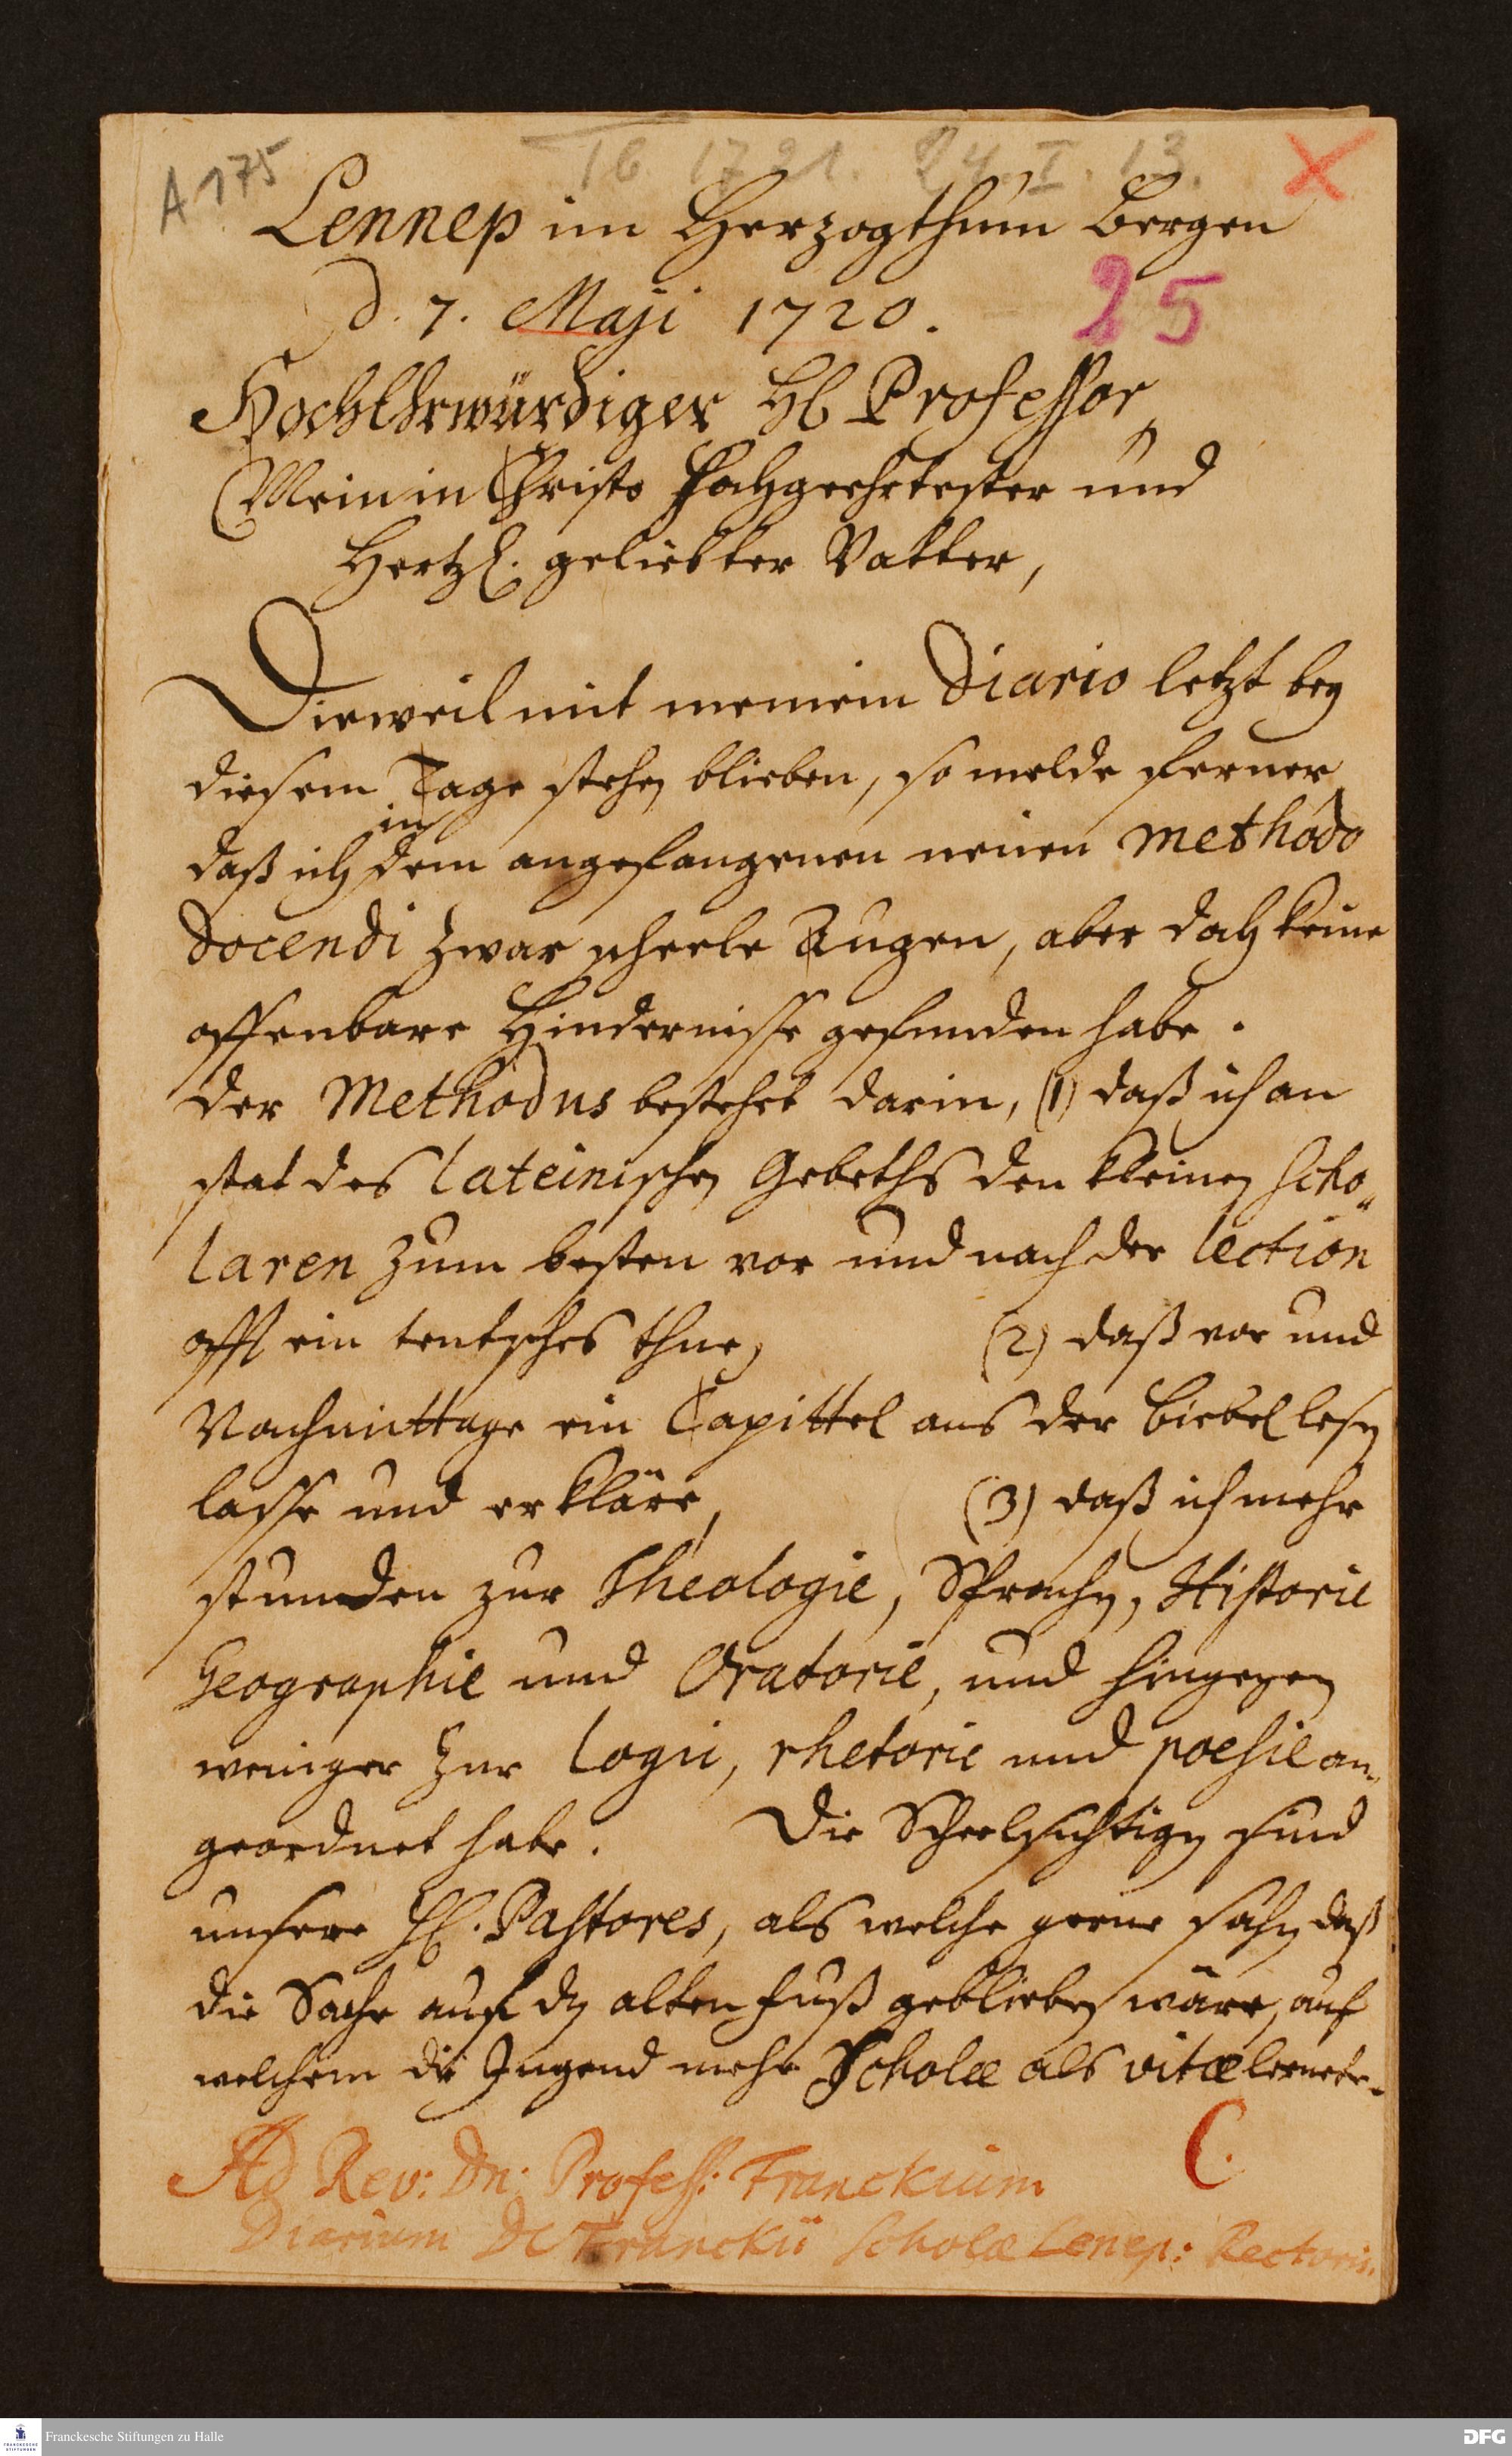 A 175
16. 1721. 24. I. 13.
Lennep im Herzogthum Bergen
d. 7. Maji 1720.
25
HochEhrwürdiger H. Professor,
Mein in Christo hochgeehrtester und
Hertzl. geliebter Vatter,
Dieweil mit meinem Diario letzt bey
diesem Tage stehen blieben, so melde ferner,
in
daß ich dem angefangenen neuen methodo
docendi zwar scheele Augen, aber doch keine
offenbare Hindernisse gefunden habe.
der Methodus bestehet darin, (1) daß ich an
stat des lateinischen Gebeths den kleinen scho„
laren zum besten vor und nach der lection
offt ein teutsches thue, (2) daß vor und
Nachmittage ein Capittel aus der Biebel lesen
lasse und erkläre, (3) daß ich mehr
stunden zur Theologie, Sprachen, Historie
Geographie und Oratorie, und hingegen
weniger zur logic, rhetoric und poesie an„
geordnet habe. Die Scheelsichtigen sind
unsere H. Pastores, als welche gerne sähen daß
die Sache auf den alten Fuß geblieben wäre, auf
welchem die Jugend mehr Scholæ als vitæ lernete.
C.
Ad Rev: Dn: Profess: Franckium
Diarium Franckii Scholæ Lenep: Rectoris.
Franckesche Stiftungen zu Halle
FRANCKESCHE
STIFTUNGEN
DFG